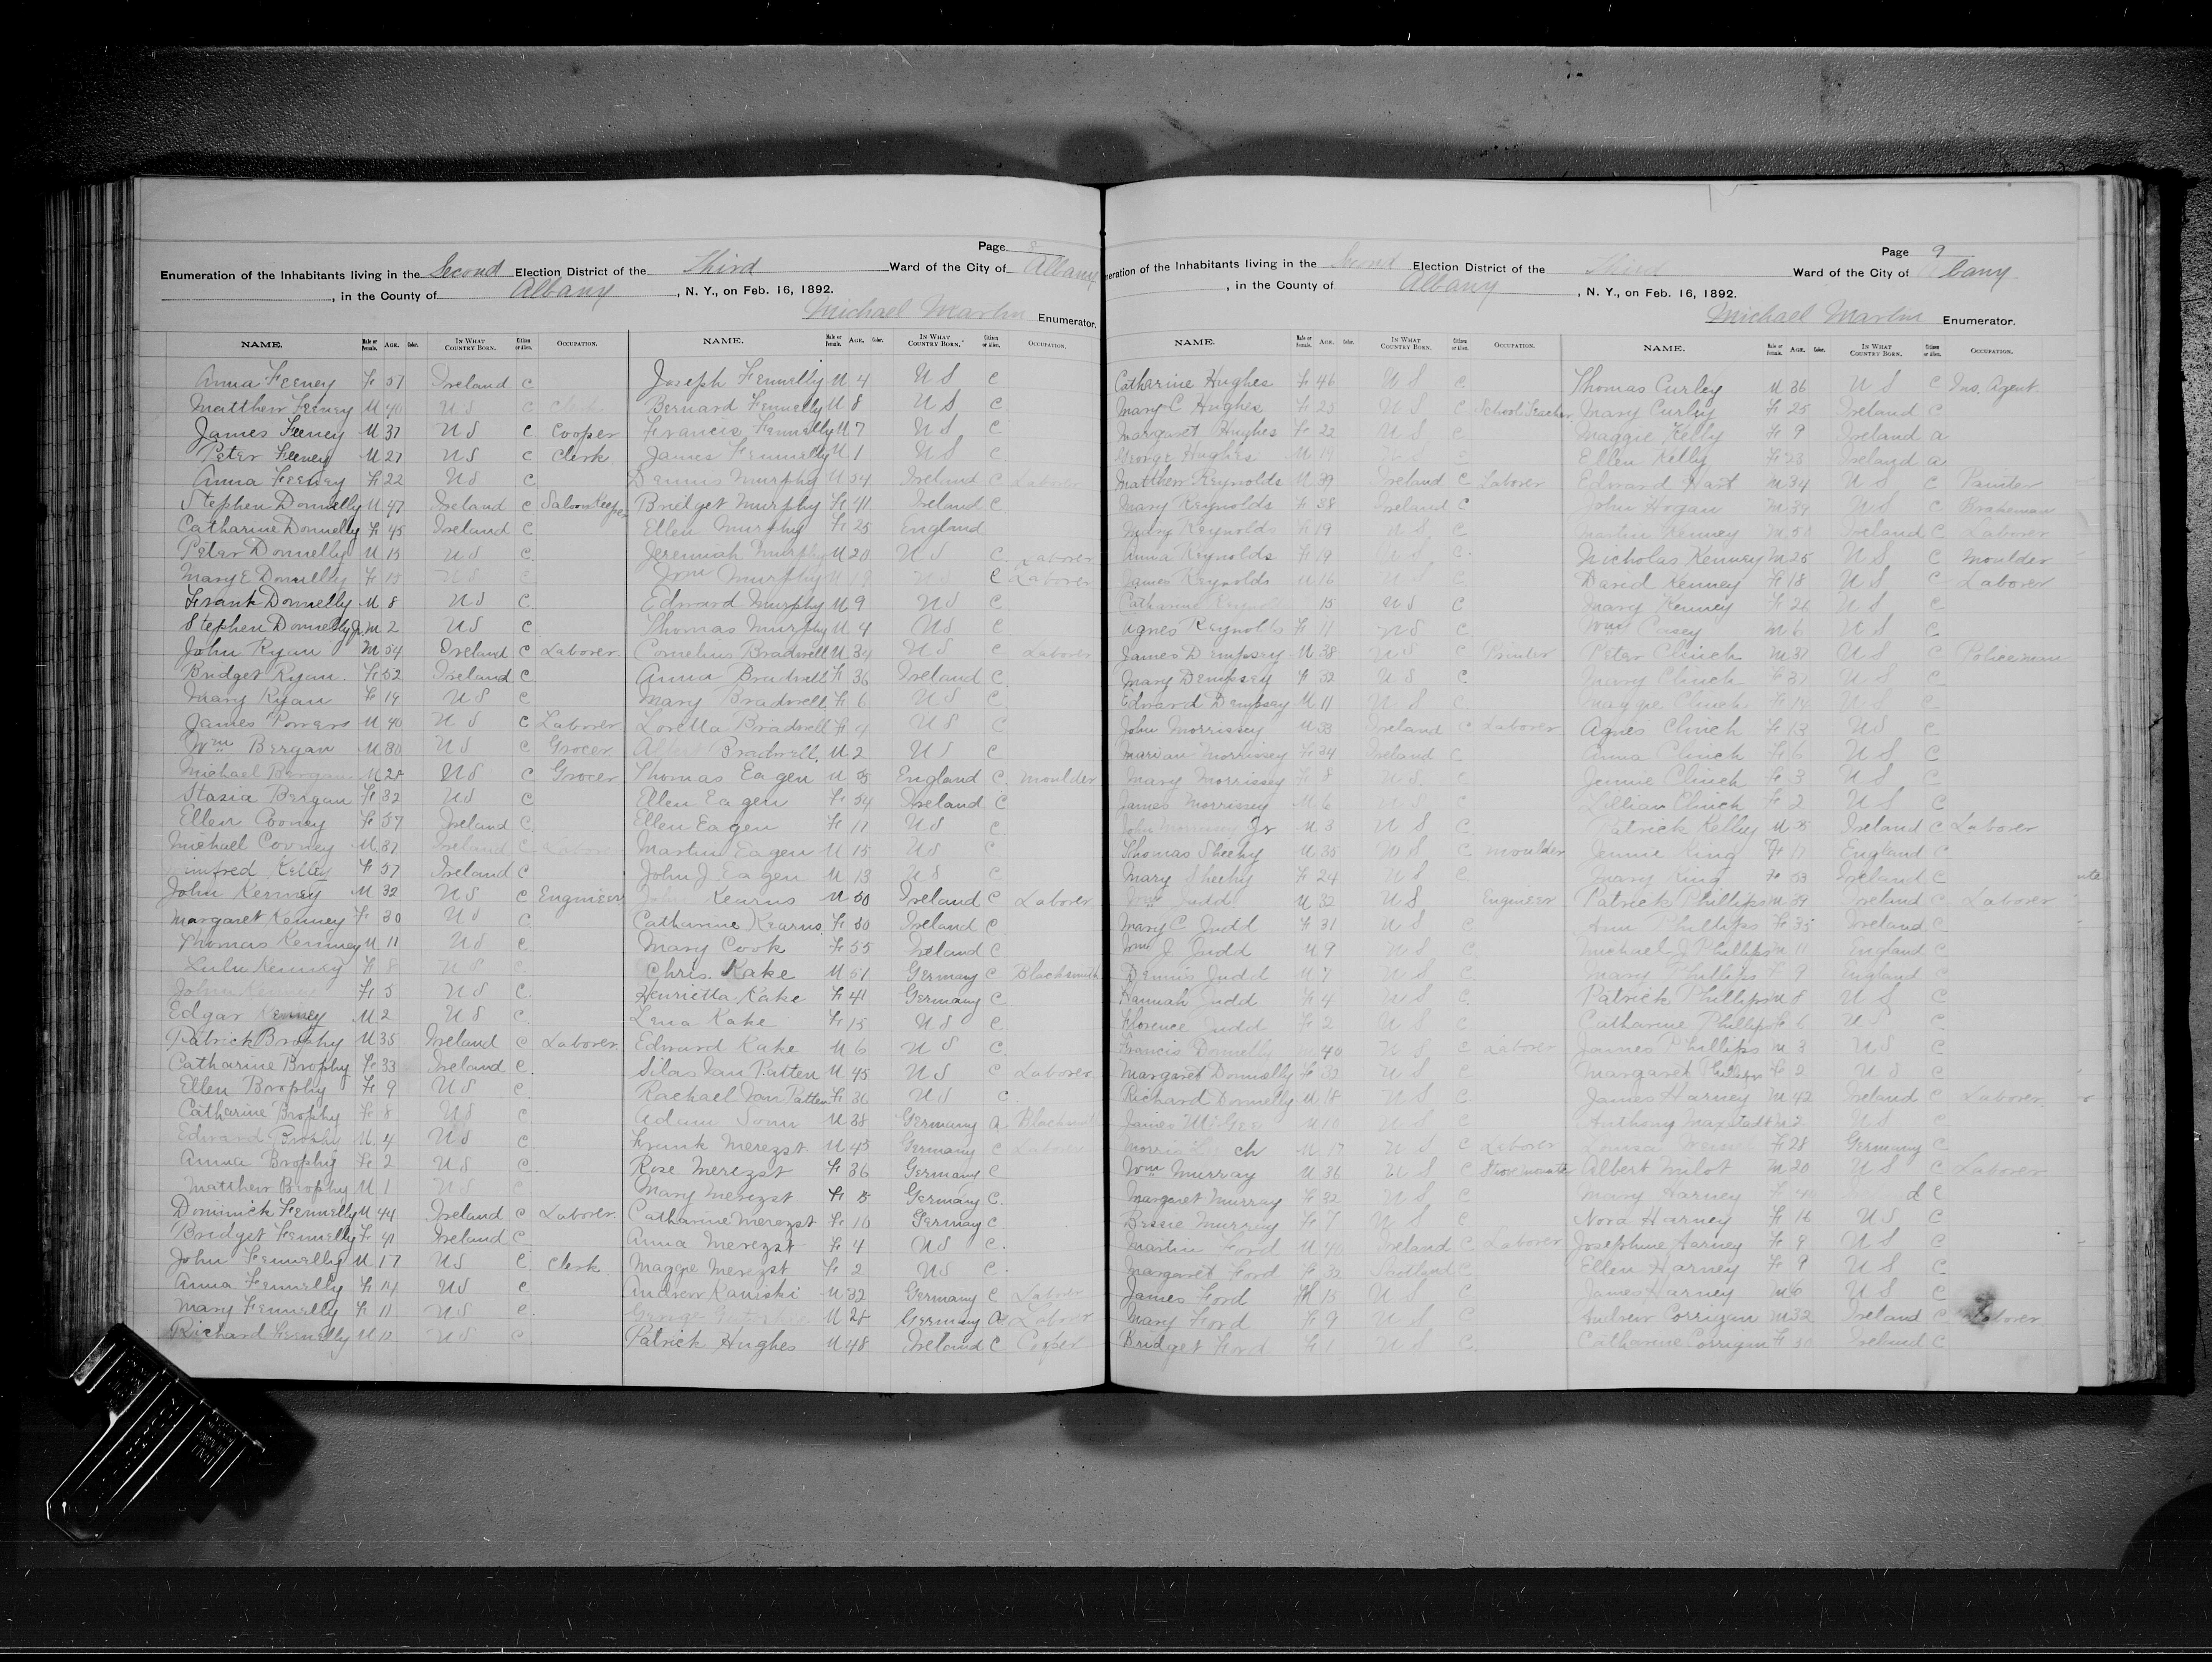 Page 8
Enumeration of the Inhabitants living in the Second Election District of the Third Ward of the City of Albany
, in the County of Albany , N. Y., on Feb. 16, 1892.
Michael Martin Enumerator.
NAME. Male or Female. AGE. Color. IN WHAT COUNTRY BORN. Citizen or Alien. OCCUPATION.
Anna Feeney F 57 Ireland C
Matthew Feeney M 40 U S C Clerk
James Feeney M 37 U S C Cooper
Peter Feeney M 27 U S C Clerk
Anna Feeney F 22 U S C
Stephen Donnelly M 47 Ireland C Saloon Keeper
Catharine Donnelly F 45 Ireland C
Peter Donnelly M 15 U S C
Mary E Donnelly F 13 U S C
Frank Donnelly M 8 U S C
Stephen Donnelly Jr. M 2 U S C
John Ryan M 54 Ireland C Laborer
Bridget Ryan F 52 Ireland C
Mary Ryan F 19 U S C
James Powers M 40 U S C Laborer
Wm Bergan M 30 U S C Grocer
Michael Bergan M 28 U S C Grocer
Stazia Bergan F 32 U S C
Ellen Cooney F 57 Ireland C
Michael Cooney M 37 Ireland C Laborer
infred Kelley F 57 Ireland C
John Kenney M 32 U S C Engineer
Margaret Kenney F 30 U S C
Thomas Kenney M 11 U S C
Lulu Kenney F 8 U S C
John Kenney F 5 U S C
Edgar Kenney M 2 U S C
Patrick Brophy M 35 Ireland C Laborer
Catharine Brophy F 33 Ireland C
Ellen Brophy F 9 U S C
Catharine Brophy F 8 U S C
Edward Brophy M 4 U S C
Anna Brophy F 2 U S C
Matthew Brophy M 1 U S C
Dominick Fennelly M 44 Ireland C Laborer
Bridget Fennelly F 41 Ireland C
John Fennelly M 17 U S C Clerk
Anna Fennelly F 14 U S C
Mary Fennelly F 11 U S C
Richard Fennelly M 10 U S C
NAME. Male or Female. AGE. Color. IN WHAT COUNTRY BORN. Citizen or Alien. OCCUPATION.
Joseph Fennelly M 4 U S C
Bernard Fennelly M 8 U S C
Francis Fennelly M 7 U S C
James Fennelly M 1 U S C
Dennis Murphy M 54 Ireland C Laborer
Bridget Murphy F 41 Ireland C
Ellen Murphy F 25 England
Jeremiah Murphy M 20 U S C Laborer
Jno Murphy M 19 U C Laborer
Edward Murphy M 9 U S C
Thomas Murphy M 4 U S C
Cornelius Bradwell M 34 U S C Laborer
Anna Bradwell F 36 Ireland C
Mary Bradwell F 6 U S C
Loretta Bradwell F 4 U S C
Bradwell M 2 U S C
Thomas Eagen M 55 England C Moulder
Ellen Eagen F 54 Ireland C
Ellen Eagen F 17 U S C
Martin Eagen M 15 U S C
John J Eagen M 13 U S C
John Kearns M 50 Ireland C Laborer
Catharine Kearns F 50 Ireland C
Mary Cook F 55 Ireland C
Chris. Kake M 51 Germany C Blacksmith
Henrietta Kake F 41 Germany C
Lena Kake F 15 U S C
Edward Kake M 6 U S C
Silas Van Patten M 45 U S C Laborer
Rachael Van Patten F 36 U S C
Adam Sonn M 38 Germany A Blacksmith
Frank Merezst M 45 Germany C Laborer
Rose Merezst F 36 Germany C
Mary Merezst F 15 Germany C
Catharine Merezst F 10 Germany C
Anna Merezst F 4 U S C
Maggie Merezst F 2 U S C
Andrew Kaniski M 32 Germany C Labor
George M 28 Germany A Labor
Patrick Hughes M 48 Ireland C Cooper
Page 9
neration of the Inhabitants living in the Second Election District of the Third Ward of the City of Albany
, in the County of Albany , N. Y., on Feb. 16, 1892.
Michael Martin Enumerator.
NAME. Male or Female. AGE. Color. IN WHAT COUNTRY BORN. Citizen or Alien. OCCUPATION.
Catharine Hughes F 46 U S C
Mary C Hughes F 25 U S C School Teacher
Margaret Hughes F 22 U S C
George Hughes M 19 U S C
Matthew Reynolds M 39 Ireland C Laborer
Mary Reynolds F 38 Ireland C
Mary Reynolds F 19 U S C
Anna Reynolds F 19 U S C
James Reynolds M 16 U S C
Catharine Reynolds 15 U S C
Agnes Reynolds F 11 U S C
James Dempsey M 38 U S C Printer
Mary Dempsey F 32 U S C
Edward Dempsey M 11 U S C
John Morrissey M 33 Ireland C Laborer
Marian Morrissey F 34 Ireland C
Mary Morrissey F 8 U S C
James Morrissey M 6 U S C
John Morrissey Jr M 3 U S C
Thomas Sheehy M 35 U S C Moulder
Mary Sheehy F 24 U S C
Wm Judd M 32 U S Engineer
Mary C Judd F 31 U S C
Wm J Judd M 9 U S C
Dennis Judd M 7 U S C
Hannah Judd F 4 U S C
Florence Judd F 2 U S C
Francis Donnelly M 40 U S C Laborer
Margaret Donnelly F 32 U S C
Richard Donnelly M 18 U S C
James McGee M 10 U S C
Morris ch M 17 U S C Laborer
Wm Murray M 36 U S C Stove mounter
Margaret Murray F 32 U S C
Bessie Murray F 7 U S C
Martin Ford M 40 Ireland C Laborer
Margaret Ford F 32 Scotland C
James Ford M 13 U S C
Mary Ford F 9 U S C
Bridget Ford F 1 U S C
NAME. Male or Female. AGE. Color. IN WHAT COUNTRY BORN. Citizen or Alien. OCCUPATION.
Thomas Curley M 36 U S C Ins. Agent
Mary Curley F 25 Ireland C
Maggie Kelly F 9 Ireland a
Ellen Kelly F 23 Ireland a
Edward Hart M 34 U S C Painter
John Hogan M 39 U S C Brakeman
Martin Kenney M 50 Ireland C Laborer
Nicholas Kenney M 25 U S C Moulder
David Kenney F 18 U S C Laborer
Mary Kenney F 26 U S C
Wm Casey M 6 U S C
Peter Clinch M 37 U S C Policeman
Mary Clinch F 37 U S C
Maggie Clinch F 14 U S C
Agnes Clinch F 13 U S C
Anna Clinch F 6 U S C
Jennie Clinch F 3 U S C
Lillian Clinch F 2 U S C
Patrick Kelley M 35 Ireland C Laborer
Jennie King F 17 England C
Mary King F 53 Ireland C
Patrick Phillips M 39 Ireland C Laborer
Ann Phillips F 35 Ireland C
Michael J Phillips M 11 England C
Mary Phillips F 9 England C
Patrick Phillips M 8 U S C
Catharine Phillips F 6 U S C
James Phillips M 3 U S C
Margaret Phillips F 2 U S C
James Harney M 42 Ireland C Laborer
Anthony Maxstadt M 2 U S C
Louisa F 28 Germany C
Albert Milot M 20 U S C Laborer
Mary Harney F 40 d C
Nora Harney F 16 U S C
Josephine Harney F 9 U S C
Ellen Harney F 9 U S C
James Harney M 6 U S C
Andrew Corrigan M 32 Ireland C Laborer
Catharine Corrigan F 30 Ireland C